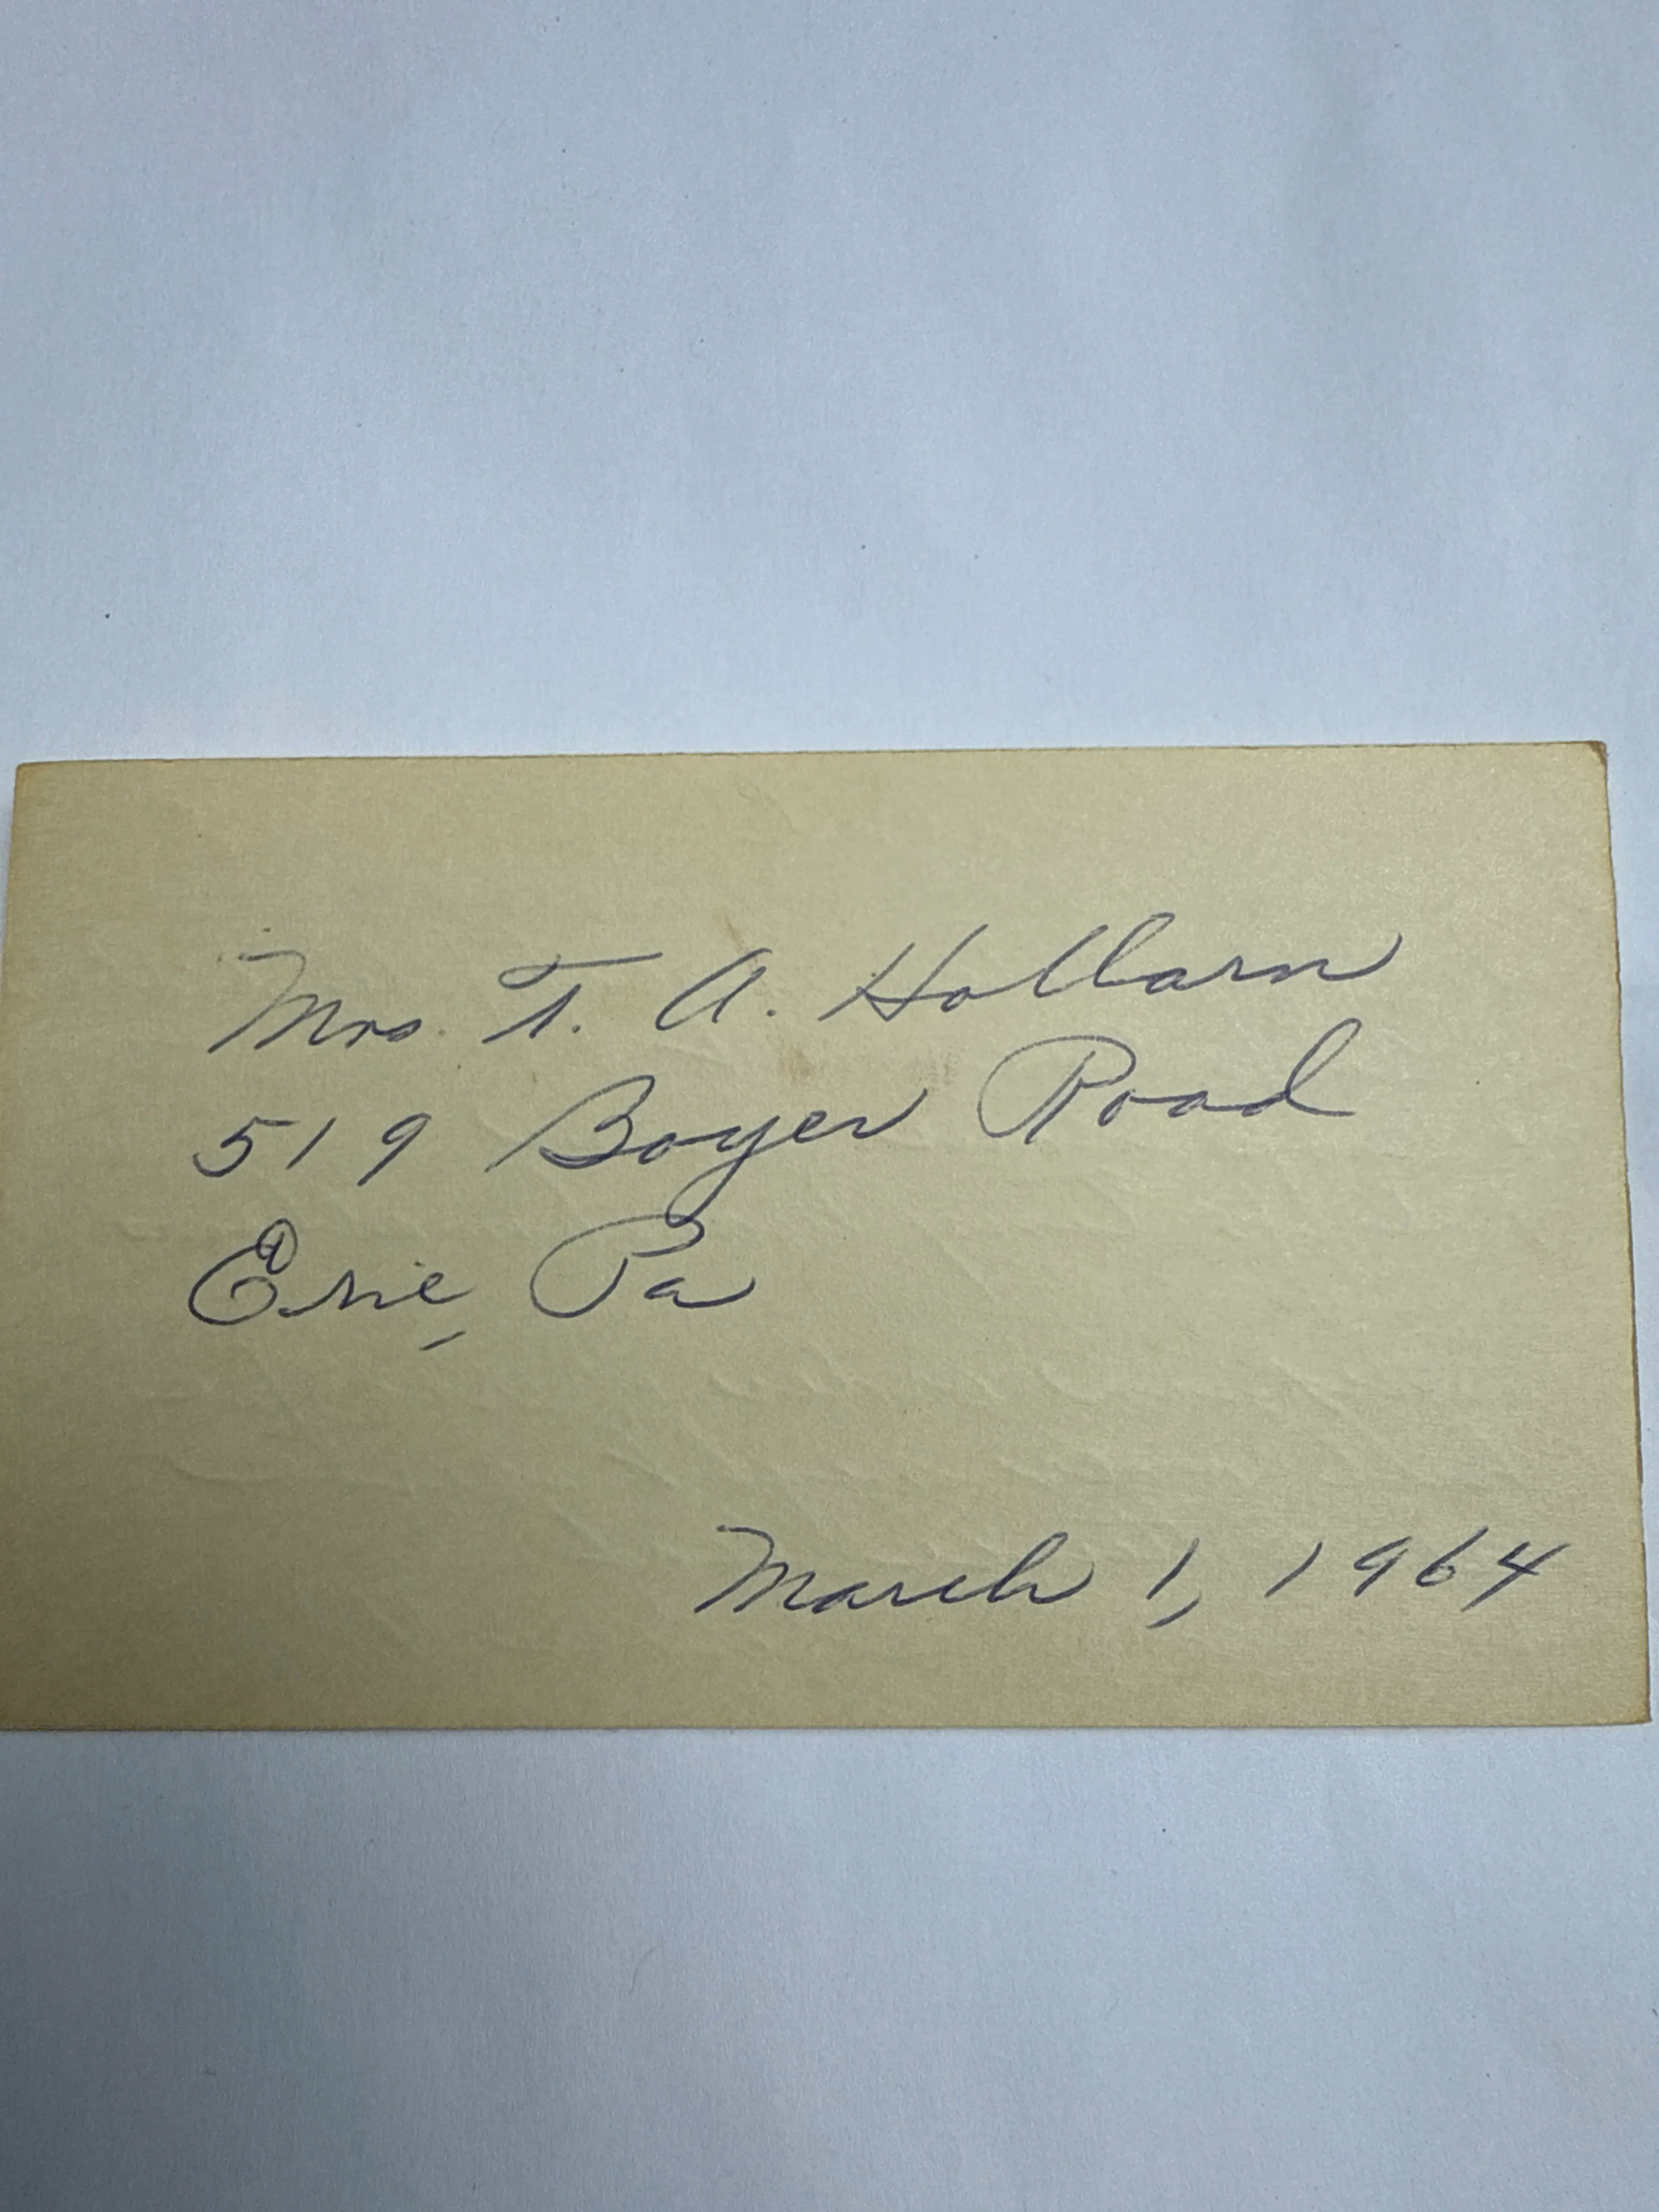 Mrs. T. A. Hollarn
519 Boyer Road
Erie, Pa
March 1, 1964